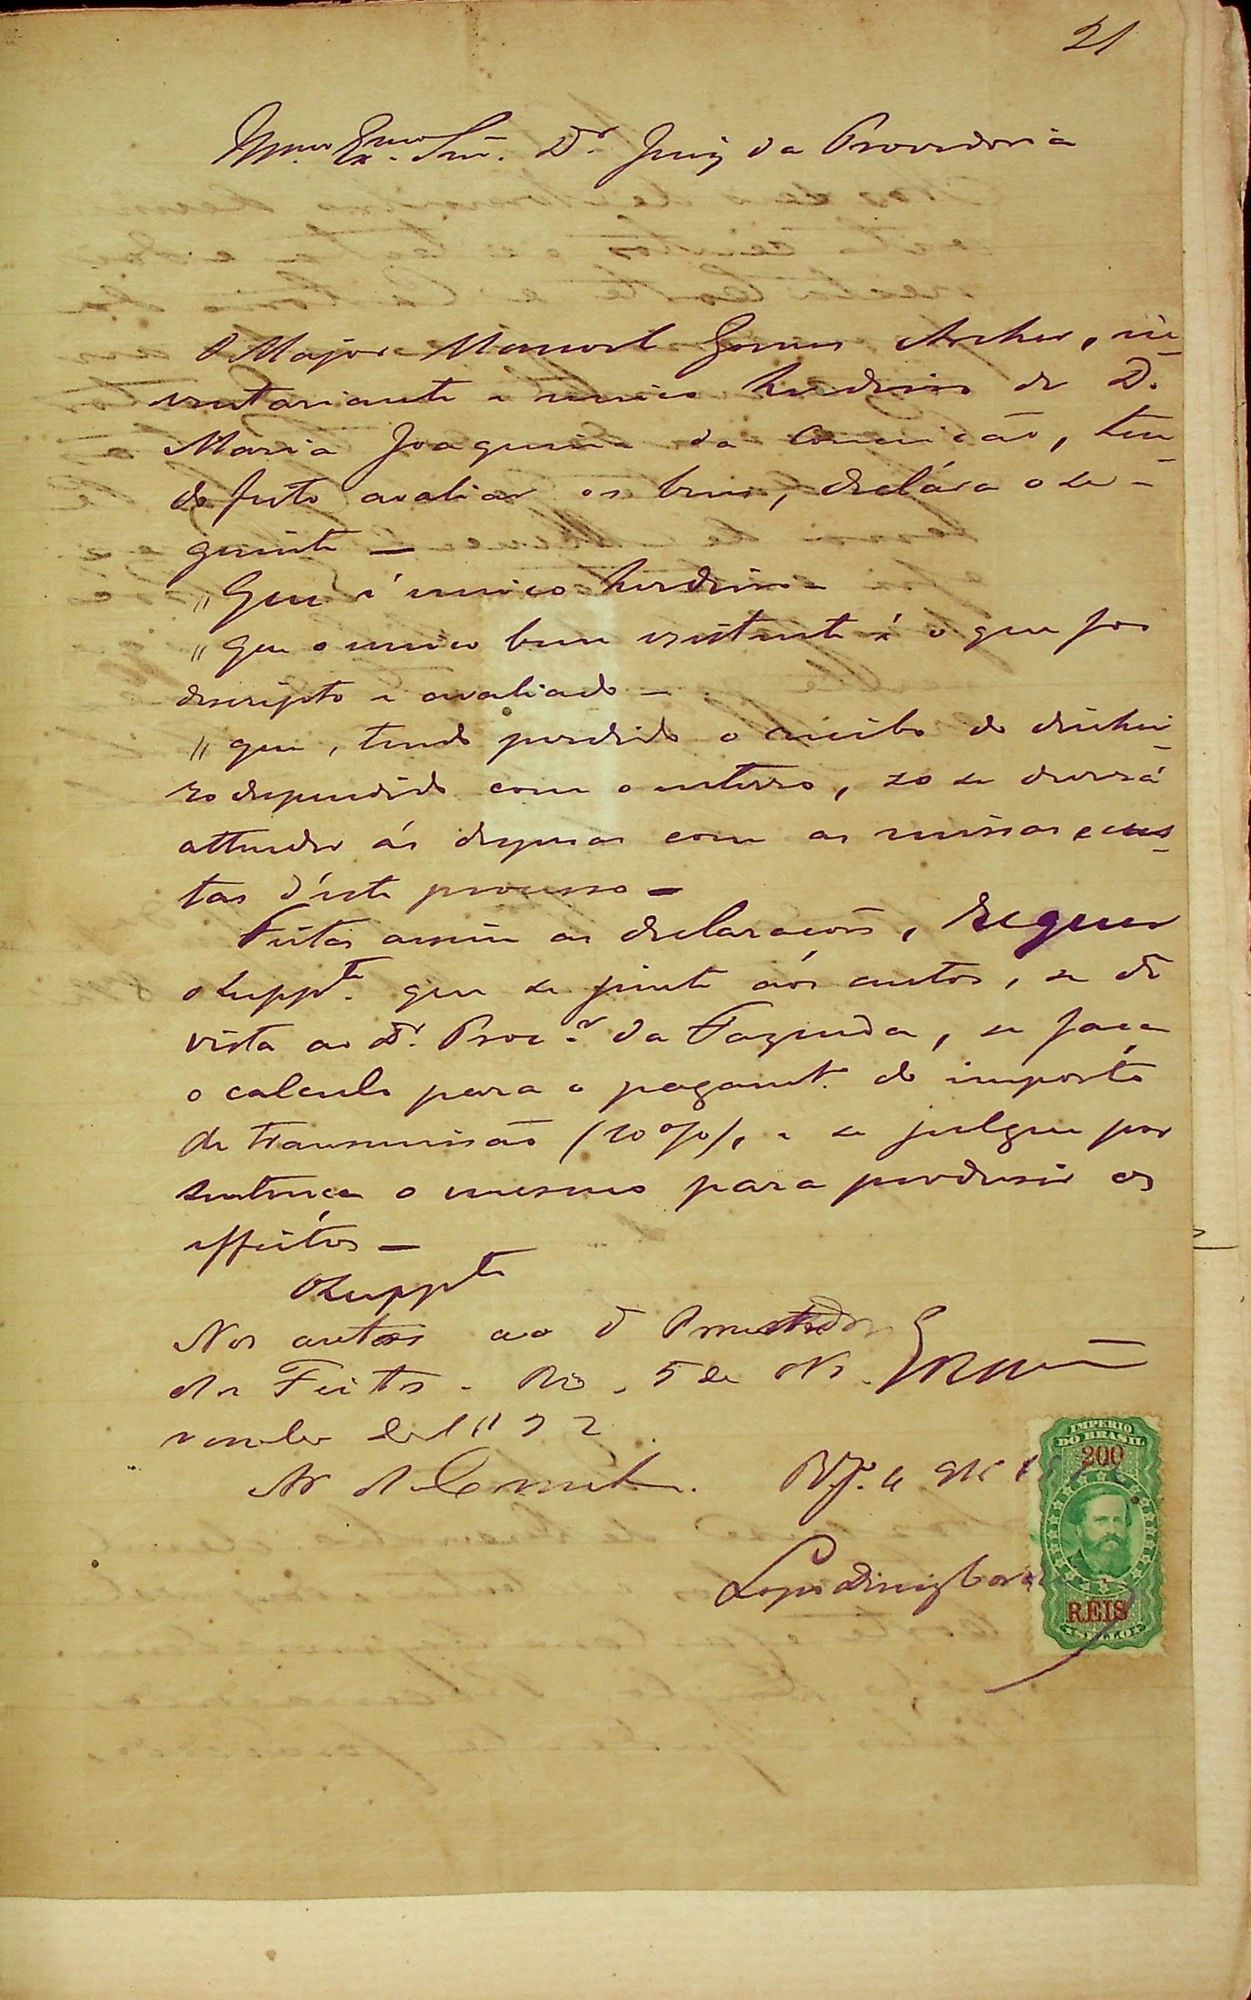 21
Illmo Exmo Snr. Dr Juiz da Provedoria
O Major Manoel Gomes Archer, in-
ventariante e unico herdeiro de D.
Maria Joaquina da Conceicão, ten-
do feito avaliar os bens, declára o se-
guinte —
" Que é unico herdeiro —
" Que o unico bem existente é o que foi
descripto e avaliado —
" que, tendo perdido o recibo do dinhei-
ro dispendido com o enterro, so se deverá
attender ás despesas com as missas e cus-
tas d'este processo —
Feitas assim as declaracoẽs, Requer
o Suppte. que se junte aós autos, se dê
vista ao Dr. Procor. da Fazenda, se faca
o calculo para o pagamto. do imposto
de transmissão (10%), e se julgue por
sentenca o mesmo para produsir os
effeitos —
O Suppte
Nos autos ao D Procurador
dos Feitos. Rio, 5 de No-
vembro de
E R Mce
Rio 4
IMPERIO
DO BRASIL
200
REIS
SELLO